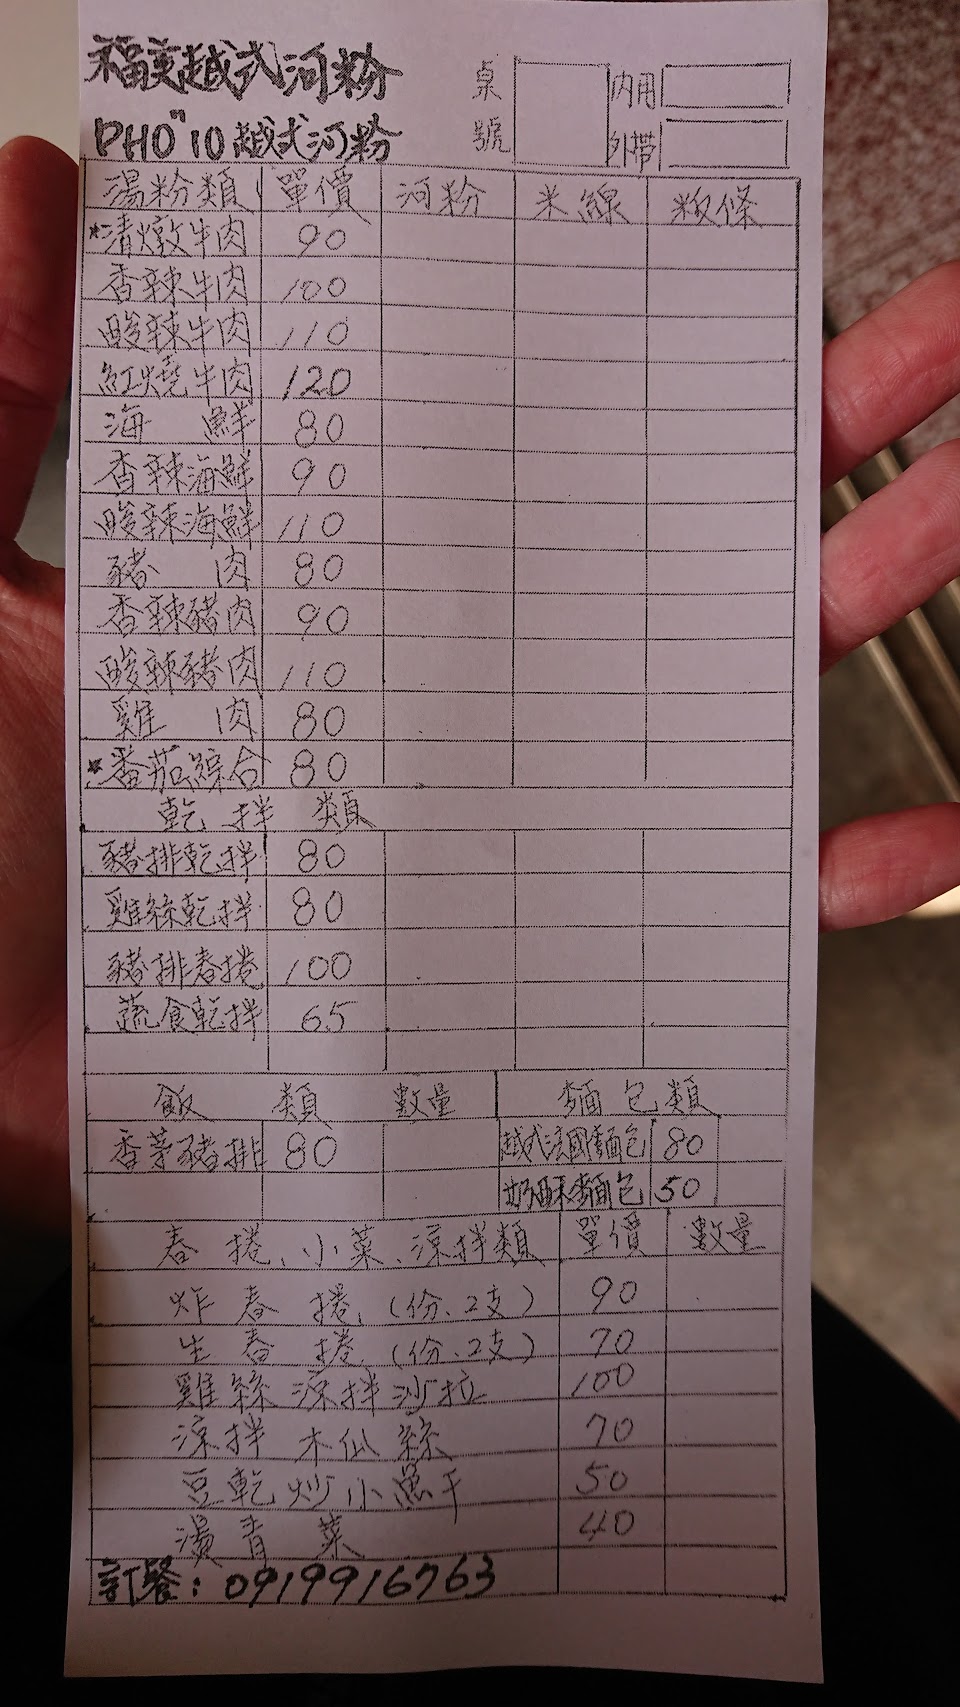 福美越式河粉
PHO"10越式河粉
桌號 內用
外帶
湯粉類 單價 河粉 米線 粄條
*清燉牛肉 90
香辣牛肉 100
酸辣牛肉 110
紅燒牛肉 120
海 鮮 80
香辣海鮮 90
酸辣海鮮 110
豬 肉 80
香辣豬肉 90
酸辣豬肉 110
雞 肉 80
*番茄綜合 80
乾 拌 類
豬排乾拌 80
雞絲乾拌 80
豬排春捲 100
蔬食乾拌 65
飯 類 數量 麵包類
香茅豬排 80 越式法國麵包 80
奶酥麵包 50
春捲、小菜、涼拌類 單價 數量
炸春捲 (份、2支) 90
生春捲 (份、2支) 70
雞絲涼拌沙拉 100
涼拌木瓜絲 70
豆乾炒小魚干 50
燙青菜 40
訂餐:0919916763